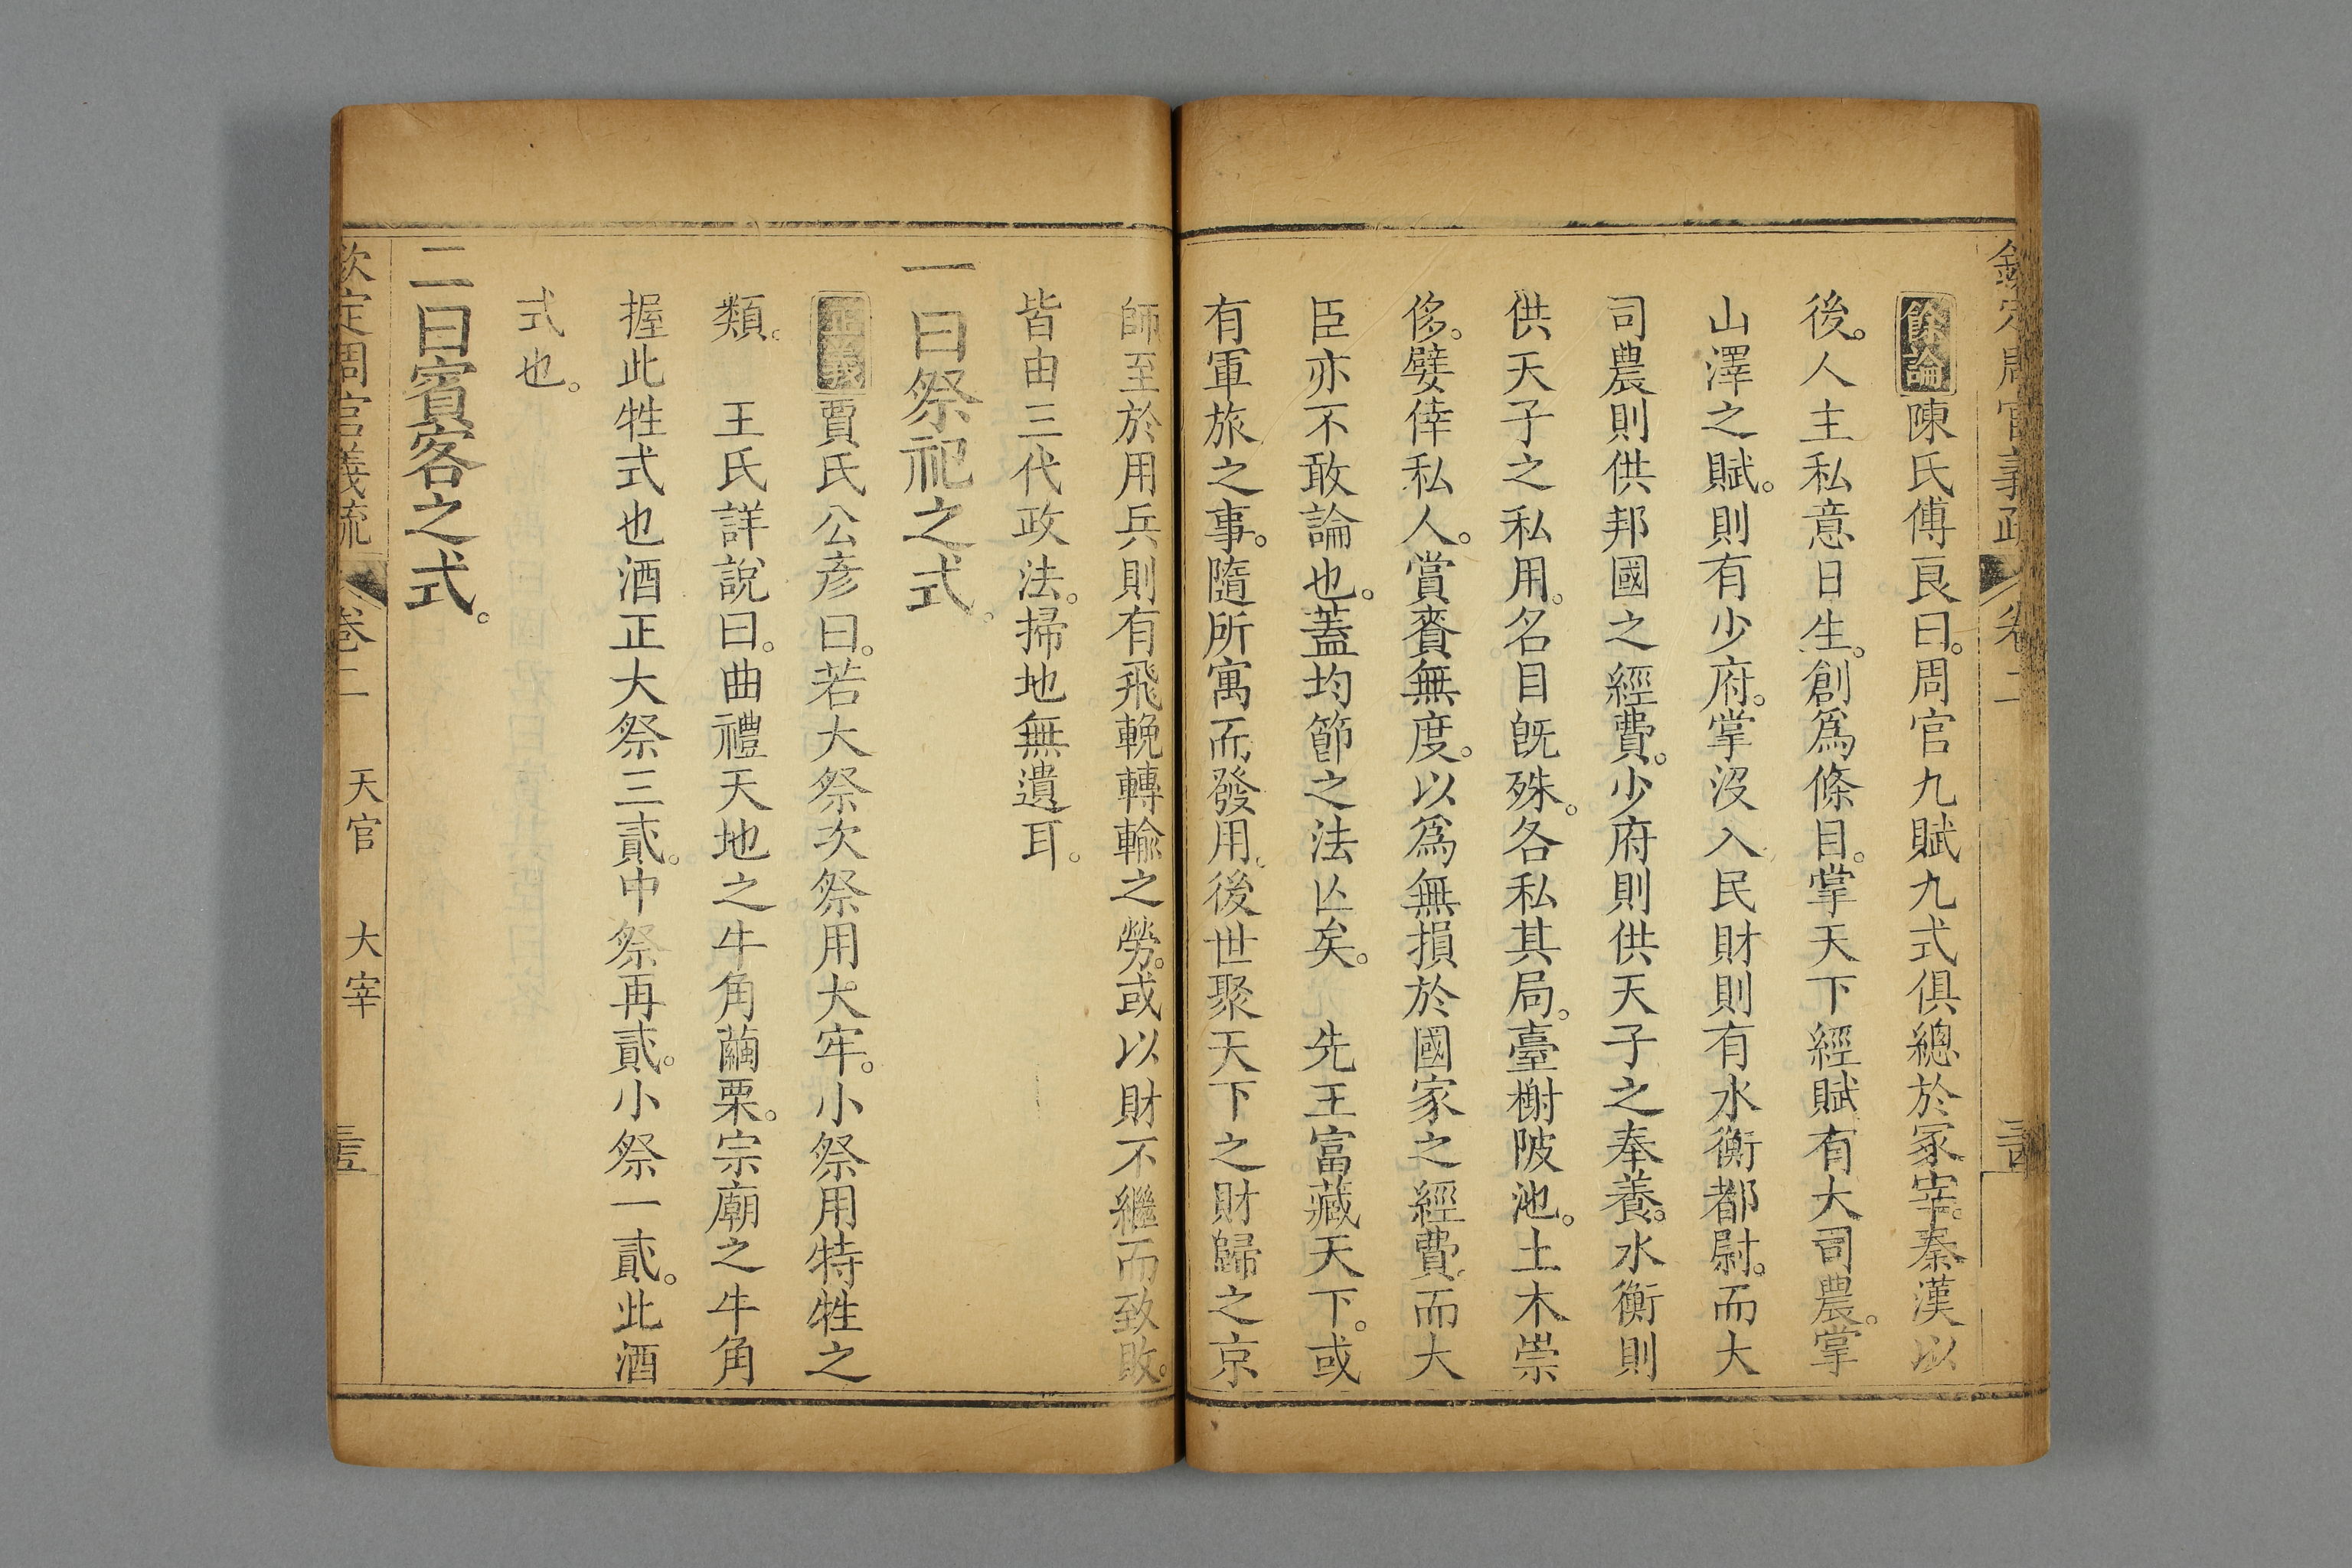 欽定周官義疏 卷二 三
餘論陳氏傅良曰。周官九賦九式俱總於冢宰。秦漢以
後。人主私意日生。創爲條目。掌天下經賦有大司農。掌
山澤之賦。則有少府。掌沒入民財則有水衡都尉。而大
司農則供邦國之經費。少府則供天子之奉養。水衡則
供天子之私用。名目旣殊。各私其局。臺榭陂池。土木崇
侈。嬖倖私人。賞賚無度。以爲無損於國家之經費。而大
臣亦不敢論也。蓋均節之法亾矣。 先王富藏天下。或
有軍旅之事。隨所寓而發用。後世聚天下之財歸之京
師至於用兵則有飛輓轉輸之勞。或以財不繼而致敗。
皆由三代政法。掃地無遺耳。
一曰祭祀之式。
正義賈氏公彥曰。若大祭次祭用大牢。小祭用特牲之
類。 王氏詳說曰。曲禮天地之牛角繭栗。宗廟之牛角
握此牲式也酒正大祭三貳。中祭再貳。小祭一貳。此酒
式也。
二曰賓客之式。
欽定周官義疏 卷二 天官 大宰 三